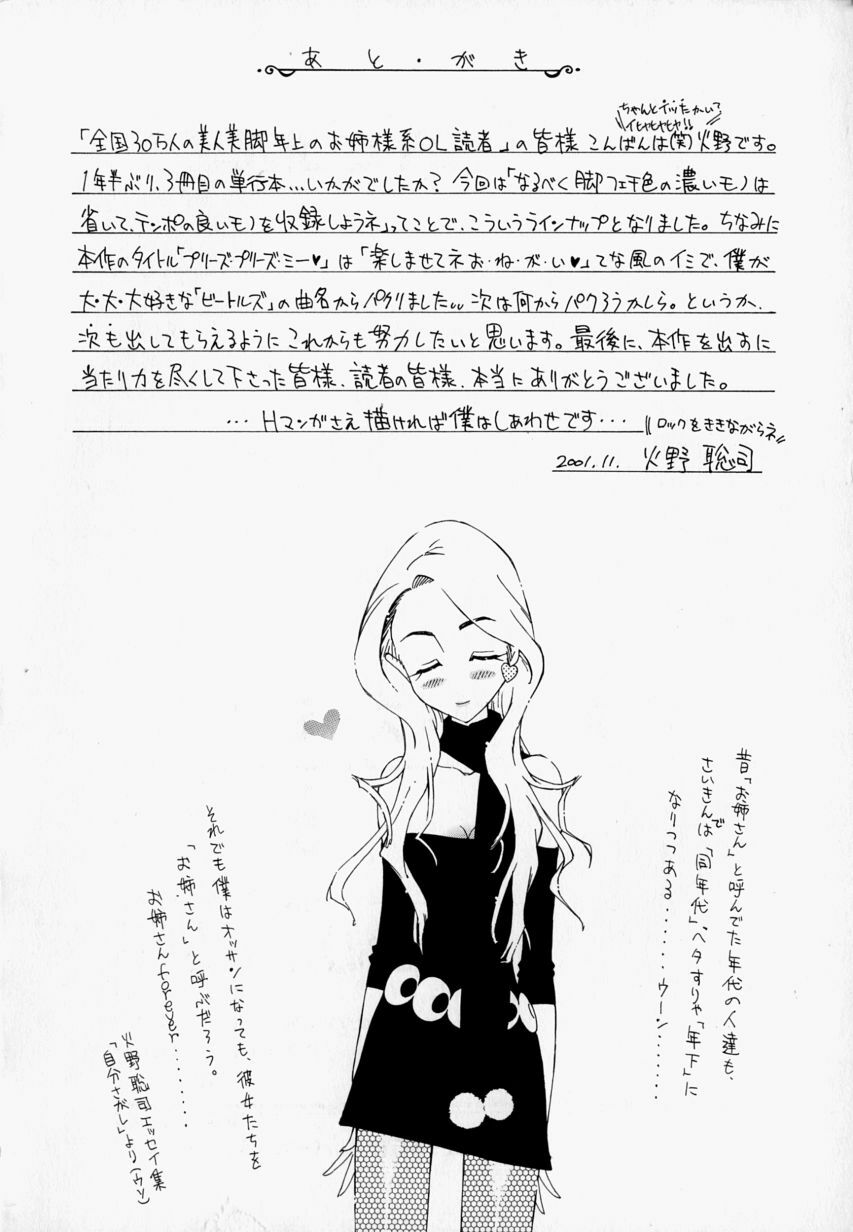 あと・がき
ちゃんとボッたかいて
イヒヒヒヒヒ!!
「全国30万人の美人美脚年上のお姉様系OL読者」の皆様 こんばんは(笑)火野です。
1年半ぶり、3冊目の単行本…いかがでしたか? 今回は「なるべく脚フェチ色の濃いモノは
省いて、テンポの良いモノを収録しようネ」ってことで、こういうラインナップとなりました。ちなみに
本作のタイトル「プリーズ・プリーズ・ミー♥」は「楽しませてネお・ね・が・い♥」てな風のイミで、僕が
大・大・大好きな「ビートルズ」の曲名からパクりました。次は何からパクろうかしら。というか、
次も出してもらえるようにこれからも努力したいと思います。最後に、本作を出すに
当たり力を尽くして下さった皆様、読者の皆様、本当にありがとうございました。
…Hマンガさえ描ければ僕はしあわせです…
ロックをききながらネ
2001.11. 火野 聡司
昔「お姉さん」と呼んでた年代の人達も、
さいきんでは「同年代」、ヘタすりゃ「年下」に
なりつつある……ウーン……
それでも僕はオッサンになっても、彼女たちを
「お姉さん」と呼ぶだろう。
お姉さんforever………
火野聡司エッセイ集
「自分さがし」より(ウソ)